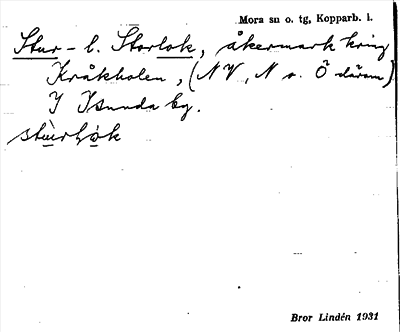 Mora sn o. tg, Kopparb. l.
Stur- l. Storlok, åkermark kring
Kråkholen, (NV, N o. Ö därom)
I Isunda by.
Bror Lindén 1931